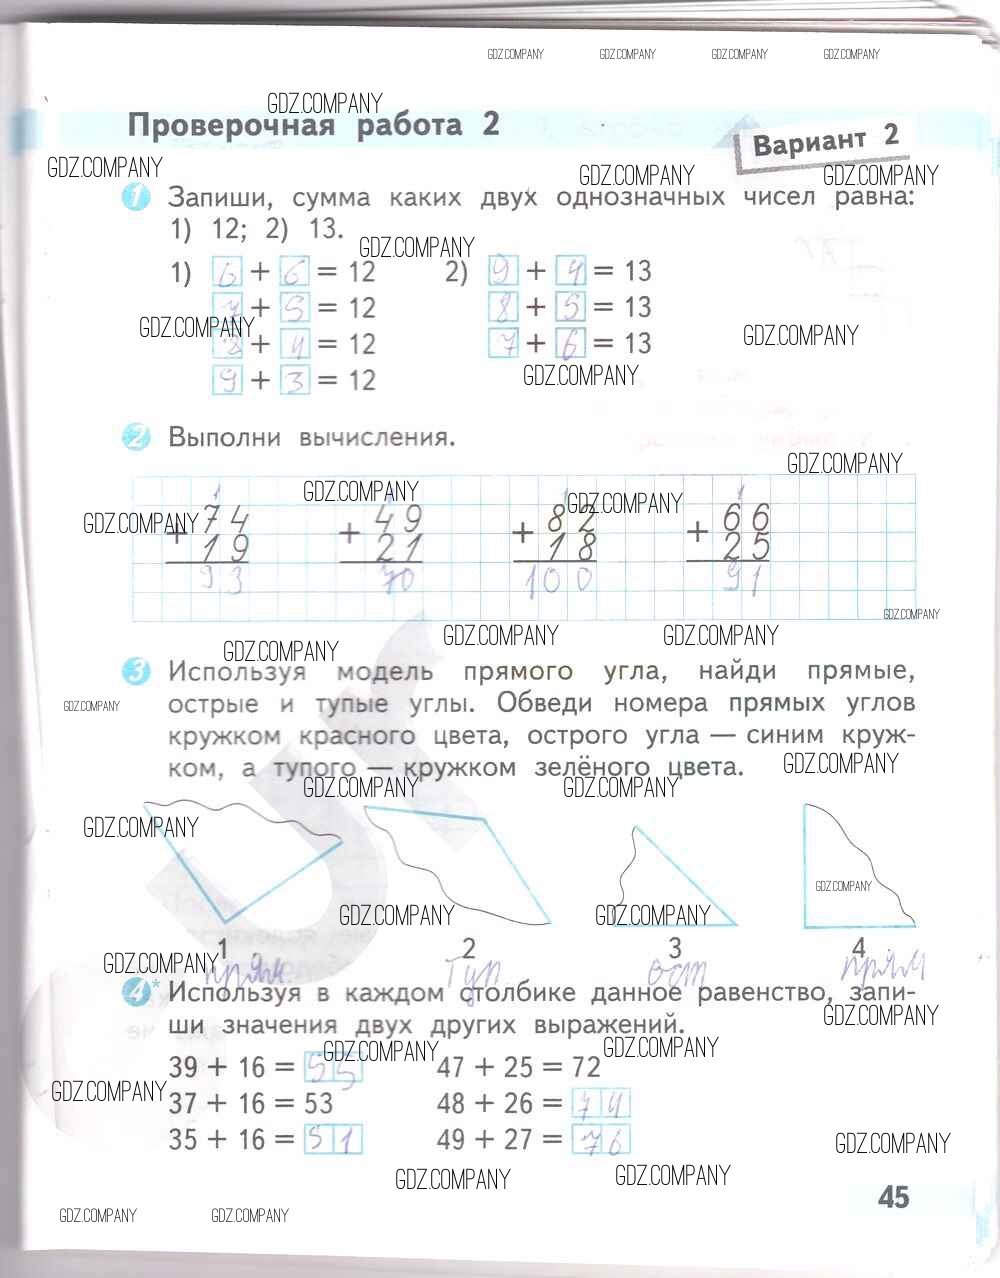 GDZ.COMPANY GDZ.COMPANY GDZ.COMPANY GDZ.COMPANY
GDZ.COMPANY
Проверочная работа 2
Вариант 2
GDZ.COMPANY GDZ.COMPANY GDZ.COMPANY
1 Запиши, сумма каких двух однозначных чисел равна:
1) 12; 2) 13.
GDZ.COMPANY
1) 6 + 6 = 12 2) 9 + 4 = 13
7 + 5 = 12 8 + 5 = 13
GDZ.COMPANY GDZ.COMPANY
8 + 4 = 12 7 + 6 = 13
9 + 3 = 12
GDZ.COMPANY
2 Выполни вычисления.
GDZ.COMPANY
GDZ.COMPANY GDZ.COMPANY
1 1 1
GDZ.COMPANY
+ 74 + 49 + 82 + 66
19 21 18 25
93 70 100 91
GDZ.COMPANY
GDZ.COMPANY GDZ.COMPANY GDZ.COMPANY
3 Используя модель прямого угла, найди прямые,
острые и тупые углы. Обведи номера прямых углов
GDZ.COMPANY
кружком красного цвета, острого угла — синим круж-
ком, а тупого — кружком зелёного цвета.
GDZ.COMPANY
GDZ.COMPANY GDZ.COMPANY
GDZ.COMPANY
GDZ.COMPANY
GDZ.COMPANY GDZ.COMPANY
1 2 3 4
GDZ.COMPANY
прям. туп. ост прям
4* Используя в каждом столбике данное равенство, запи-
GDZ.COMPANY
ши значения двух других выражений.
GDZ.COMPANY GDZ.COMPANY
39 + 16 = 55 47 + 25 = 72
GDZ.COMPANY
37 + 16 = 53 48 + 26 = 74
35 + 16 = 51 49 + 27 = 76
GDZ.COMPANY
GDZ.COMPANY GDZ.COMPANY
45
GDZ.COMPANY GDZ.COMPANY